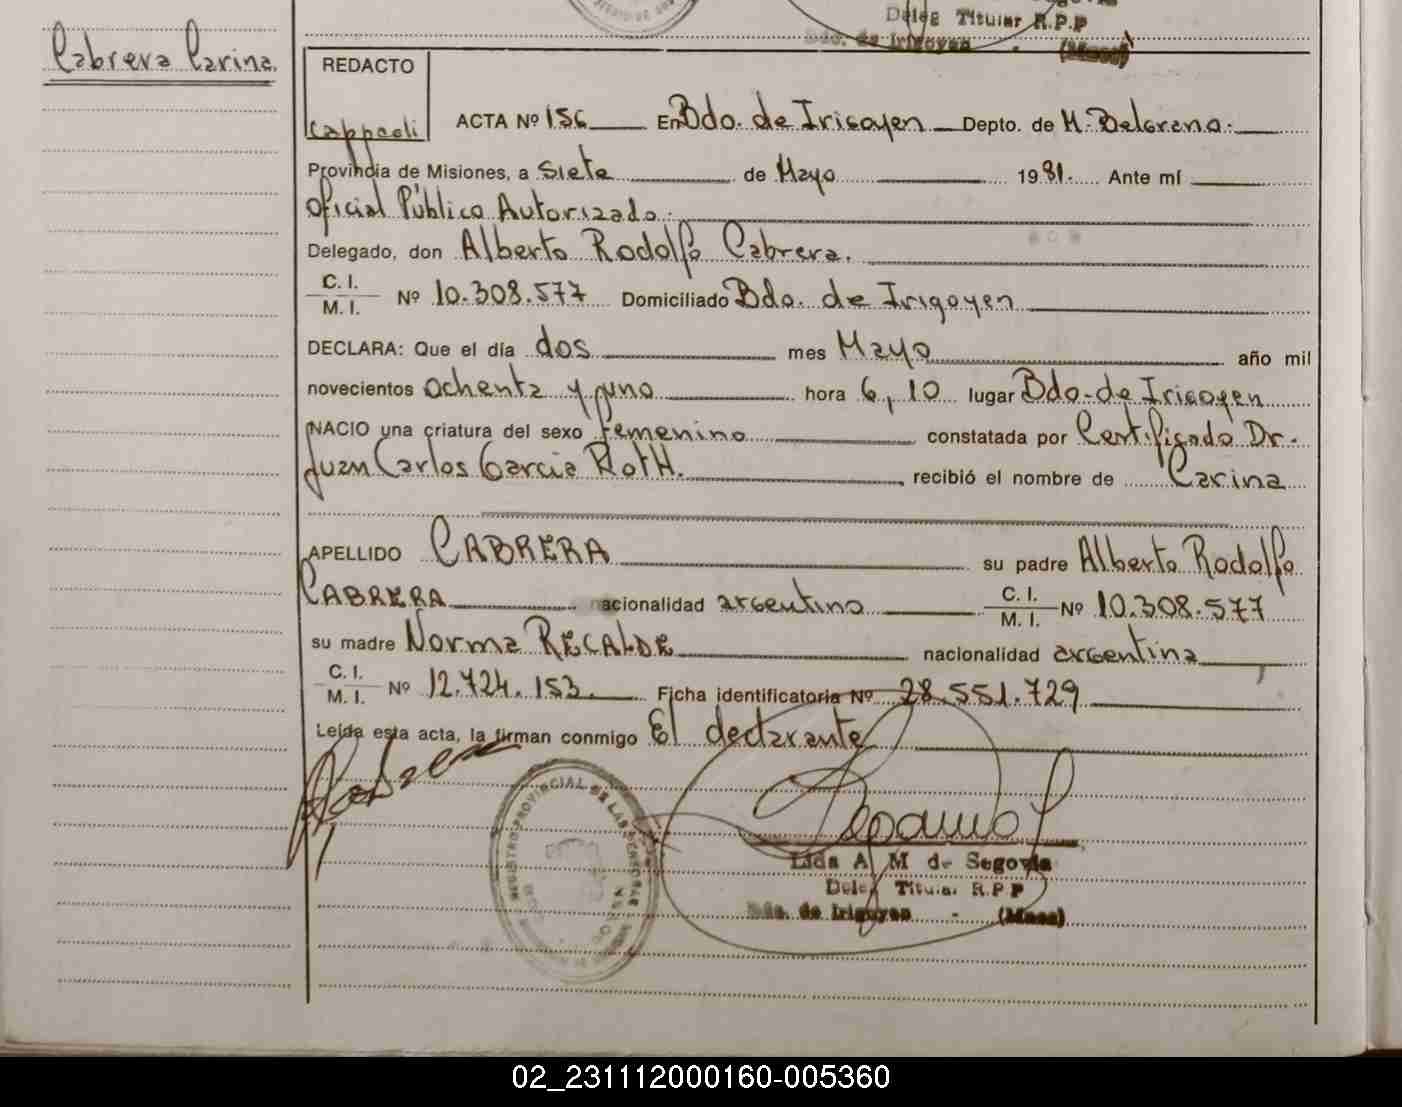 Deleg Titular R.P.P
Bdo. de Irigoyen - (Mnes)
Cabrera Carina.
REDACTO
ACTA Nº 156 En Bdo. de Irigoyen Depto. de M. Belgrano.
Provincia de Misiones, a siete de Mayo 1981. Ante mí
Oficial Público Autorizado.
Delegado, don Alberto Rodolfo Cabrera.
C. I. / M. I. Nº 10.308.577 Domiciliado Bdo. de Irigoyen
DECLARA: Que el día dos mes Mayo año mil
novecientos ochenta y uno hora 6,10 lugar Bdo. de Irigoyen
NACIO una criatura del sexo femenino constatada por Certificado Dr.
Juan Carlos Garcia Roth. recibió el nombre de Carina
APELLIDO CABRERA su padre Alberto Rodolfo
CABRERA nacionalidad argentino C. I. / M. I. Nº 10.308.577
su madre Norma RECALDE nacionalidad argentina
C. I. / M. I. Nº 12.724.153. Ficha identificatoria Nº 28.551.729
Leída esta acta, la firman conmigo El declarante
REGISTRO PROVINCIAL DE LAS PERSONAS
Lida A M de Segovia
Deleg Titular R.P.P
Bdo. de Irigoyen - (Mnes)
02_231112000160-005360